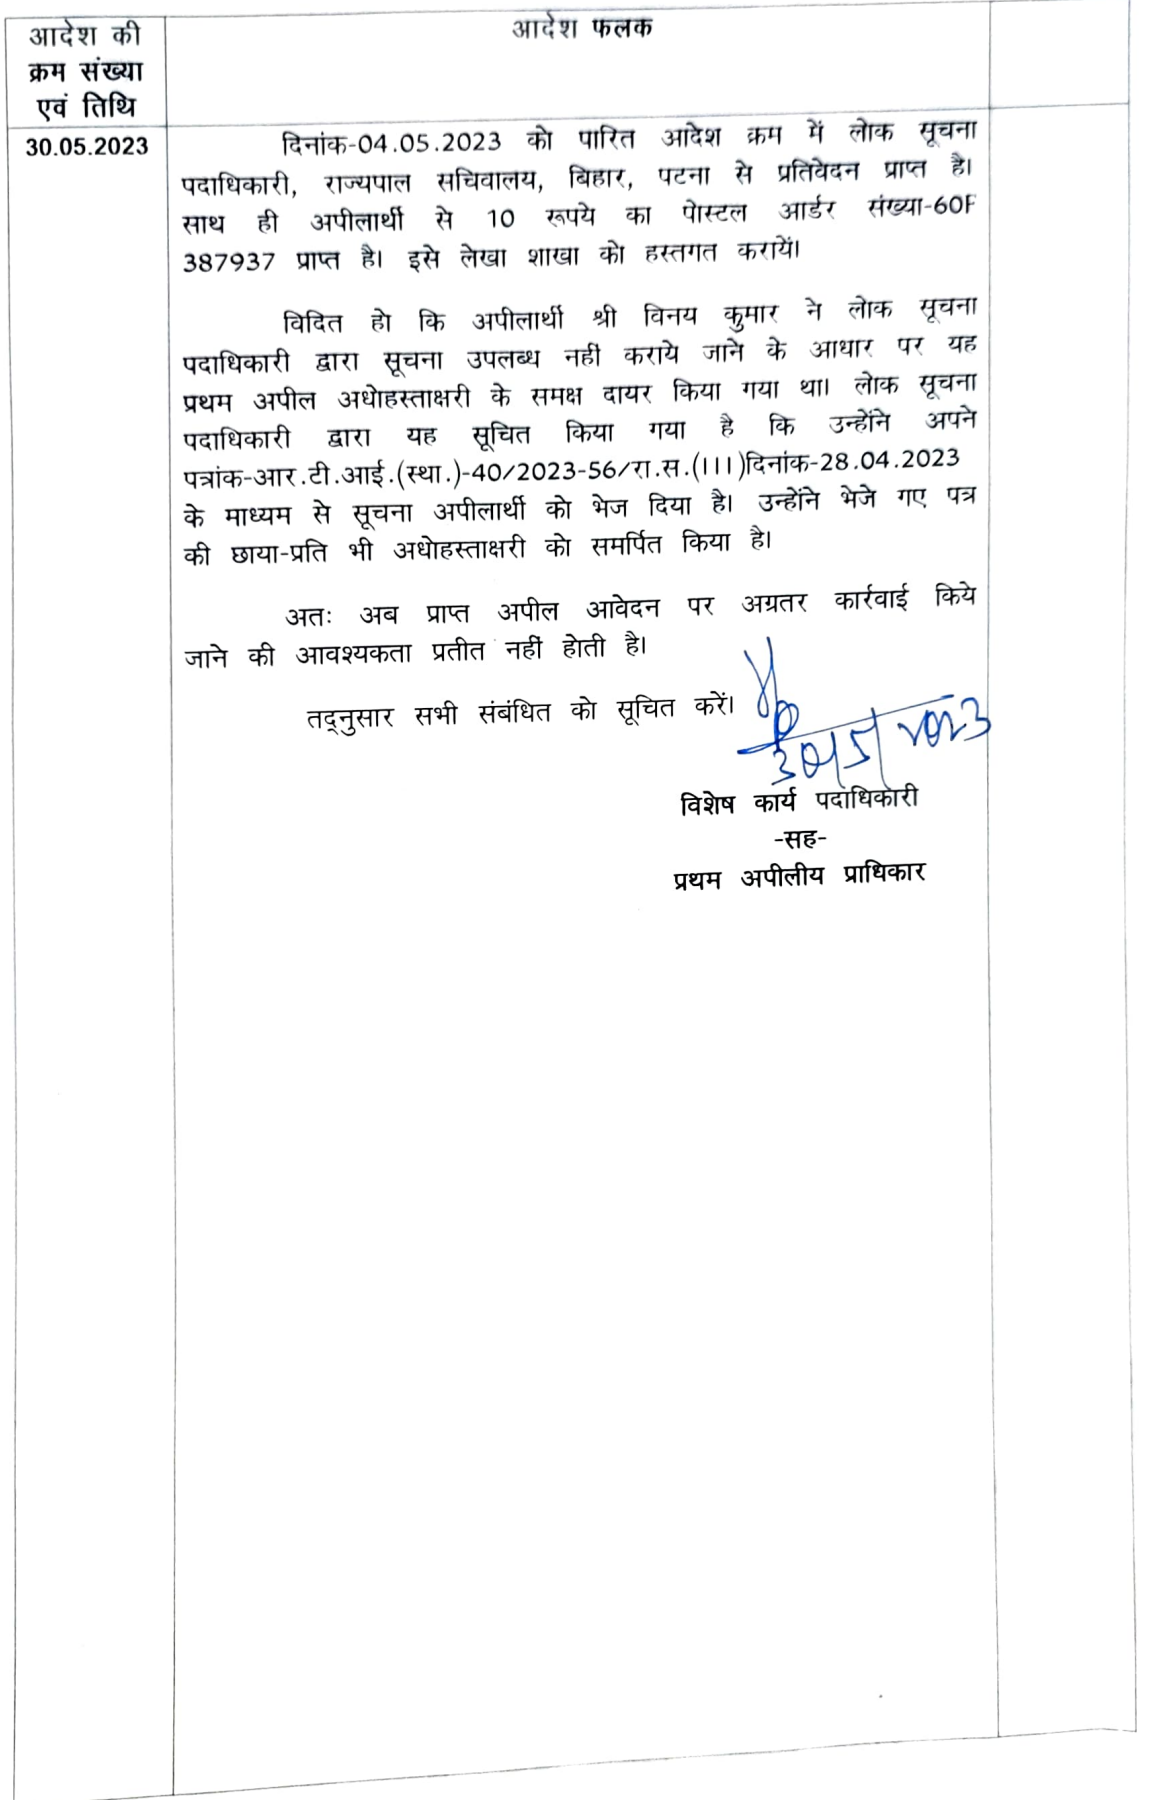 आदेश की
क्रम संख्या
एवं तिथि
आदेश फलक
30.05.2023
दिनांक-04.05.2023 को पारित आदेश क्रम में लोक सूचना
पदाधिकारी, राज्यपाल सचिवालय, बिहार, पटना से प्रतिवेदन प्राप्त है।
साथ ही अपीलार्थी से 10 रूपये का पोस्टल आर्डर संख्या-60F
387937 प्राप्त है। इसे लेखा शाखा को हस्तगत करायें।
विदित हो कि अपीलार्थी श्री विनय कुमार ने लोक सूचना
पदाधिकारी द्वारा सूचना उपलब्ध नहीं कराये जाने के आधार पर यह
प्रथम अपील अधोहस्ताक्षरी के समक्ष दायर किया गया था। लोक सूचना
पदाधिकारी द्वारा यह सूचित किया गया है कि उन्होंने अपने
पत्रांक-आर.टी.आई.(स्था.)-40/2023-56/रा.स.(III)दिनांक-28.04.2023
के माध्यम से सूचना अपीलार्थी को भेज दिया है। उन्होंने भेजे गए पत्र
की छाया-प्रति भी अधोहस्ताक्षरी को समर्पित किया है।
अतः अब प्राप्त अपील आवेदन पर अग्रतर कार्रवाई किये
जाने की आवश्यकता प्रतीत नहीं होती है।
तद्नुसार सभी संबंधित को सूचित करें।
30/5/2023
विशेष कार्य पदाधिकारी
-सह-
प्रथम अपीलीय प्राधिकार